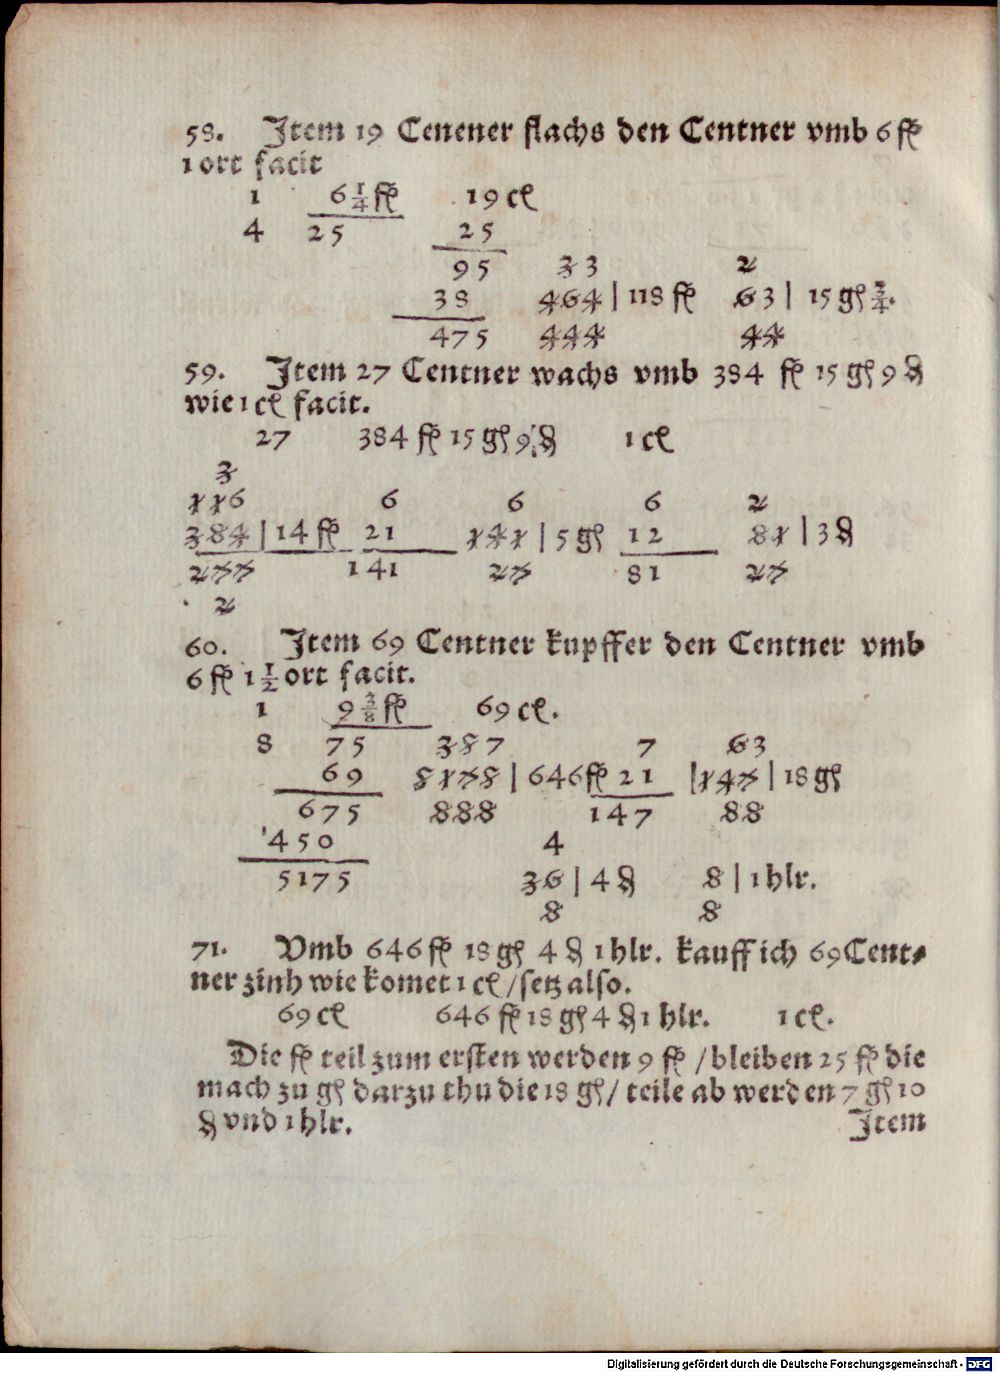 58. Item 19 Cenener flachs den Centner vmb 6 fl
1 ort facit
1 6 1/4 fl 19 cł
4 25 25
95 33 2
38 464 | 118 fl 63 | 15 gł 3/4.
475 444 44
59. Item 27 Centner wachs vmb 384 fl 15 gł 9 ₰
wie 1 cł facit.
27 384 fl 15 gł 9 ₰ 1 cł
3
116 6 6 6 2
384 | 14 fl 21 141 | 5 gł 12 81 | 3 ₰
277 141 27 81 27
2
60. Item 69 Centner kupffer den Centner vmb
6 fl 1 1/2 ort facit.
1 9 3/8 fl 69 cł.
8 75 387 7 63
69 5175 | 646 fl 21 | 147 | 18 gł
675 888 147 88
450 4
5175 36 | 4 ₰ 8 | 1 hlr.
8 8
71. Vmb 646 fl 18 gł 4 ₰ 1 hlr. kauff ich 69 Cent⸗
ner zinh wie komet 1 cł / setz also.
69 cł 646 fl 18 gł 4 ₰ 1 hlr. 1 cł.
Die fl teil zum ersten werden 9 fl / bleiben 25 fl die
mach zu gł darzu thu die 18 gł / teile ab werden 7 gł 10
₰ vnd 1 hlr. Item
Digitalisierung gefördert durch die Deutsche Forschungsgemeinschaft - DFG